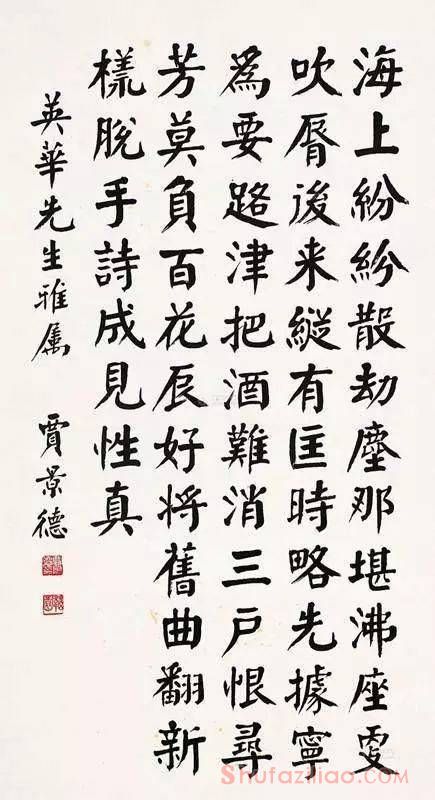 海上紛紛散劫塵那堪沸座
吹脣後来縱有匡時略先據寧
爲要路津把酒難消三戶恨尋
芳莫負百花辰好将舊曲翻新
樣脫手詩成見性真
英華先生雅属 賈景德
Shufaziliao.com